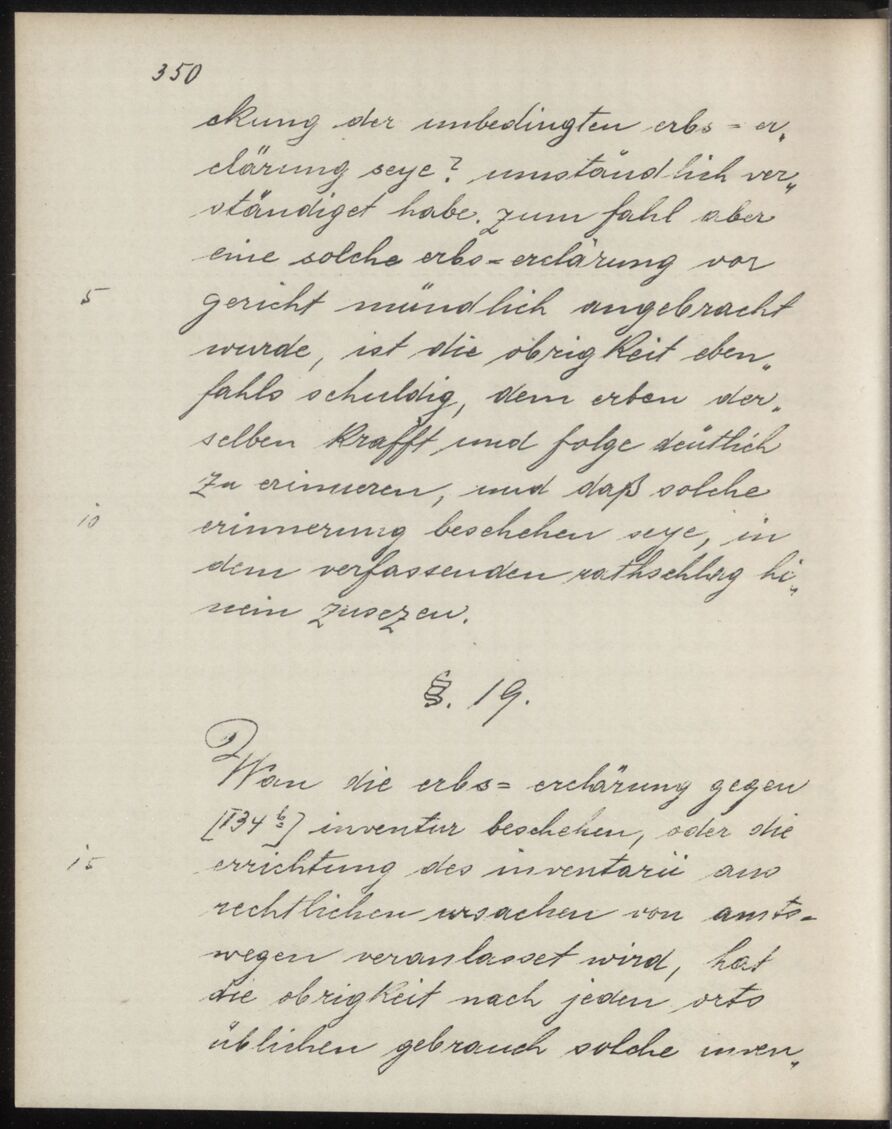 350
ckung der unbedingten erbs=er„
clärung seye? umständlich ver„
ständiget habe. zum fahl aber
eine solche erbs=erclärung vor
5 gericht mündlich angebracht
wurde, ist die obrigkeit eben„
fahls schuldig, dem erben der„
selben krafft und folge deütlich
zu erinneren, und daß solche
10 erinnerung beschehen seye, in
dem verfassenden rathschlag hi„
nein zusezen.
§. 19.
Wan die erbs=erclärung gegen
[I 34 b] inventur beschehen, oder die
15 errichtung des inventarii aus
rechtlichen ursachen von amts=
wegen veranlasset wird, hat
die obrigkeit nach jeden orts
üblichen gebrauch solche inven„